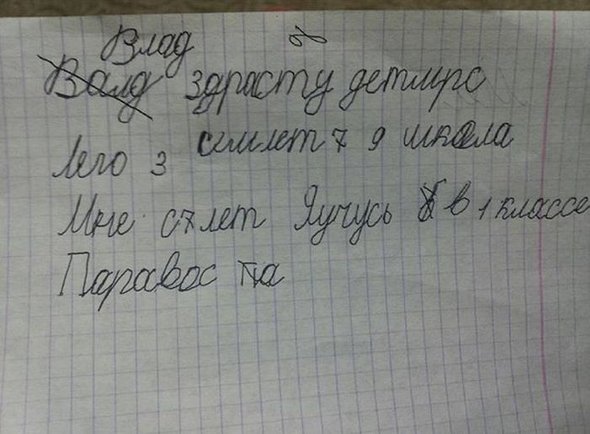 Влад
Валд здрасту детмрс
Лего 3 семлет 7 9 школа
Мне с7лет Яучусь в 1 классе
Паравос па